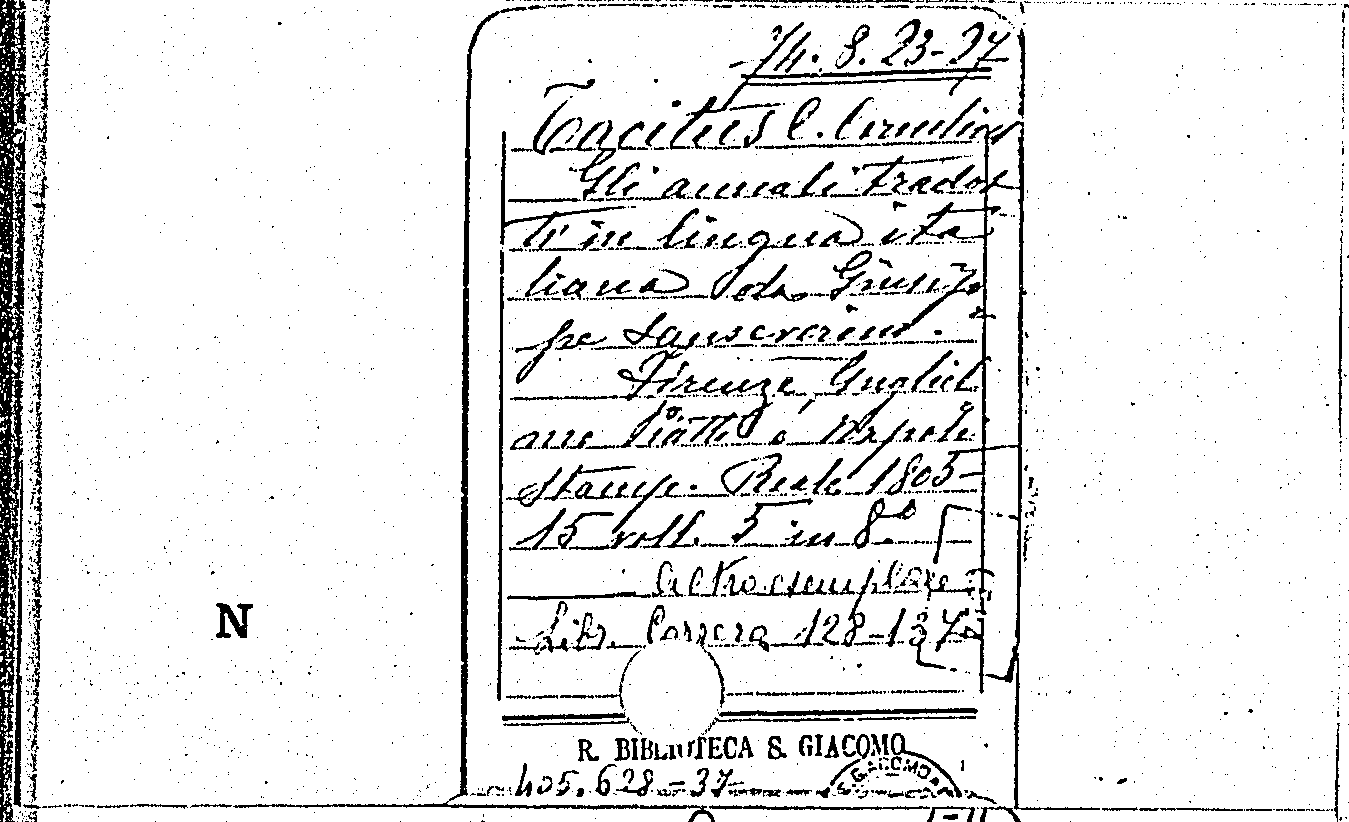 74. 8. 23-27
Tacitus C. Cornelius
Gli annali tradot
ti in lingua ita
liana da Giusep
pe Sanseverino.
Firenze, Gugliel
mo Piatti e Napoli
Stamp. Reale 1805-
15 voll. 5 in 8.°
Altro esemplare
Libr. Carrera 128-137
N
R. BIBLIOTECA S. GIACOMO
405.628-37
S. GIACOMO